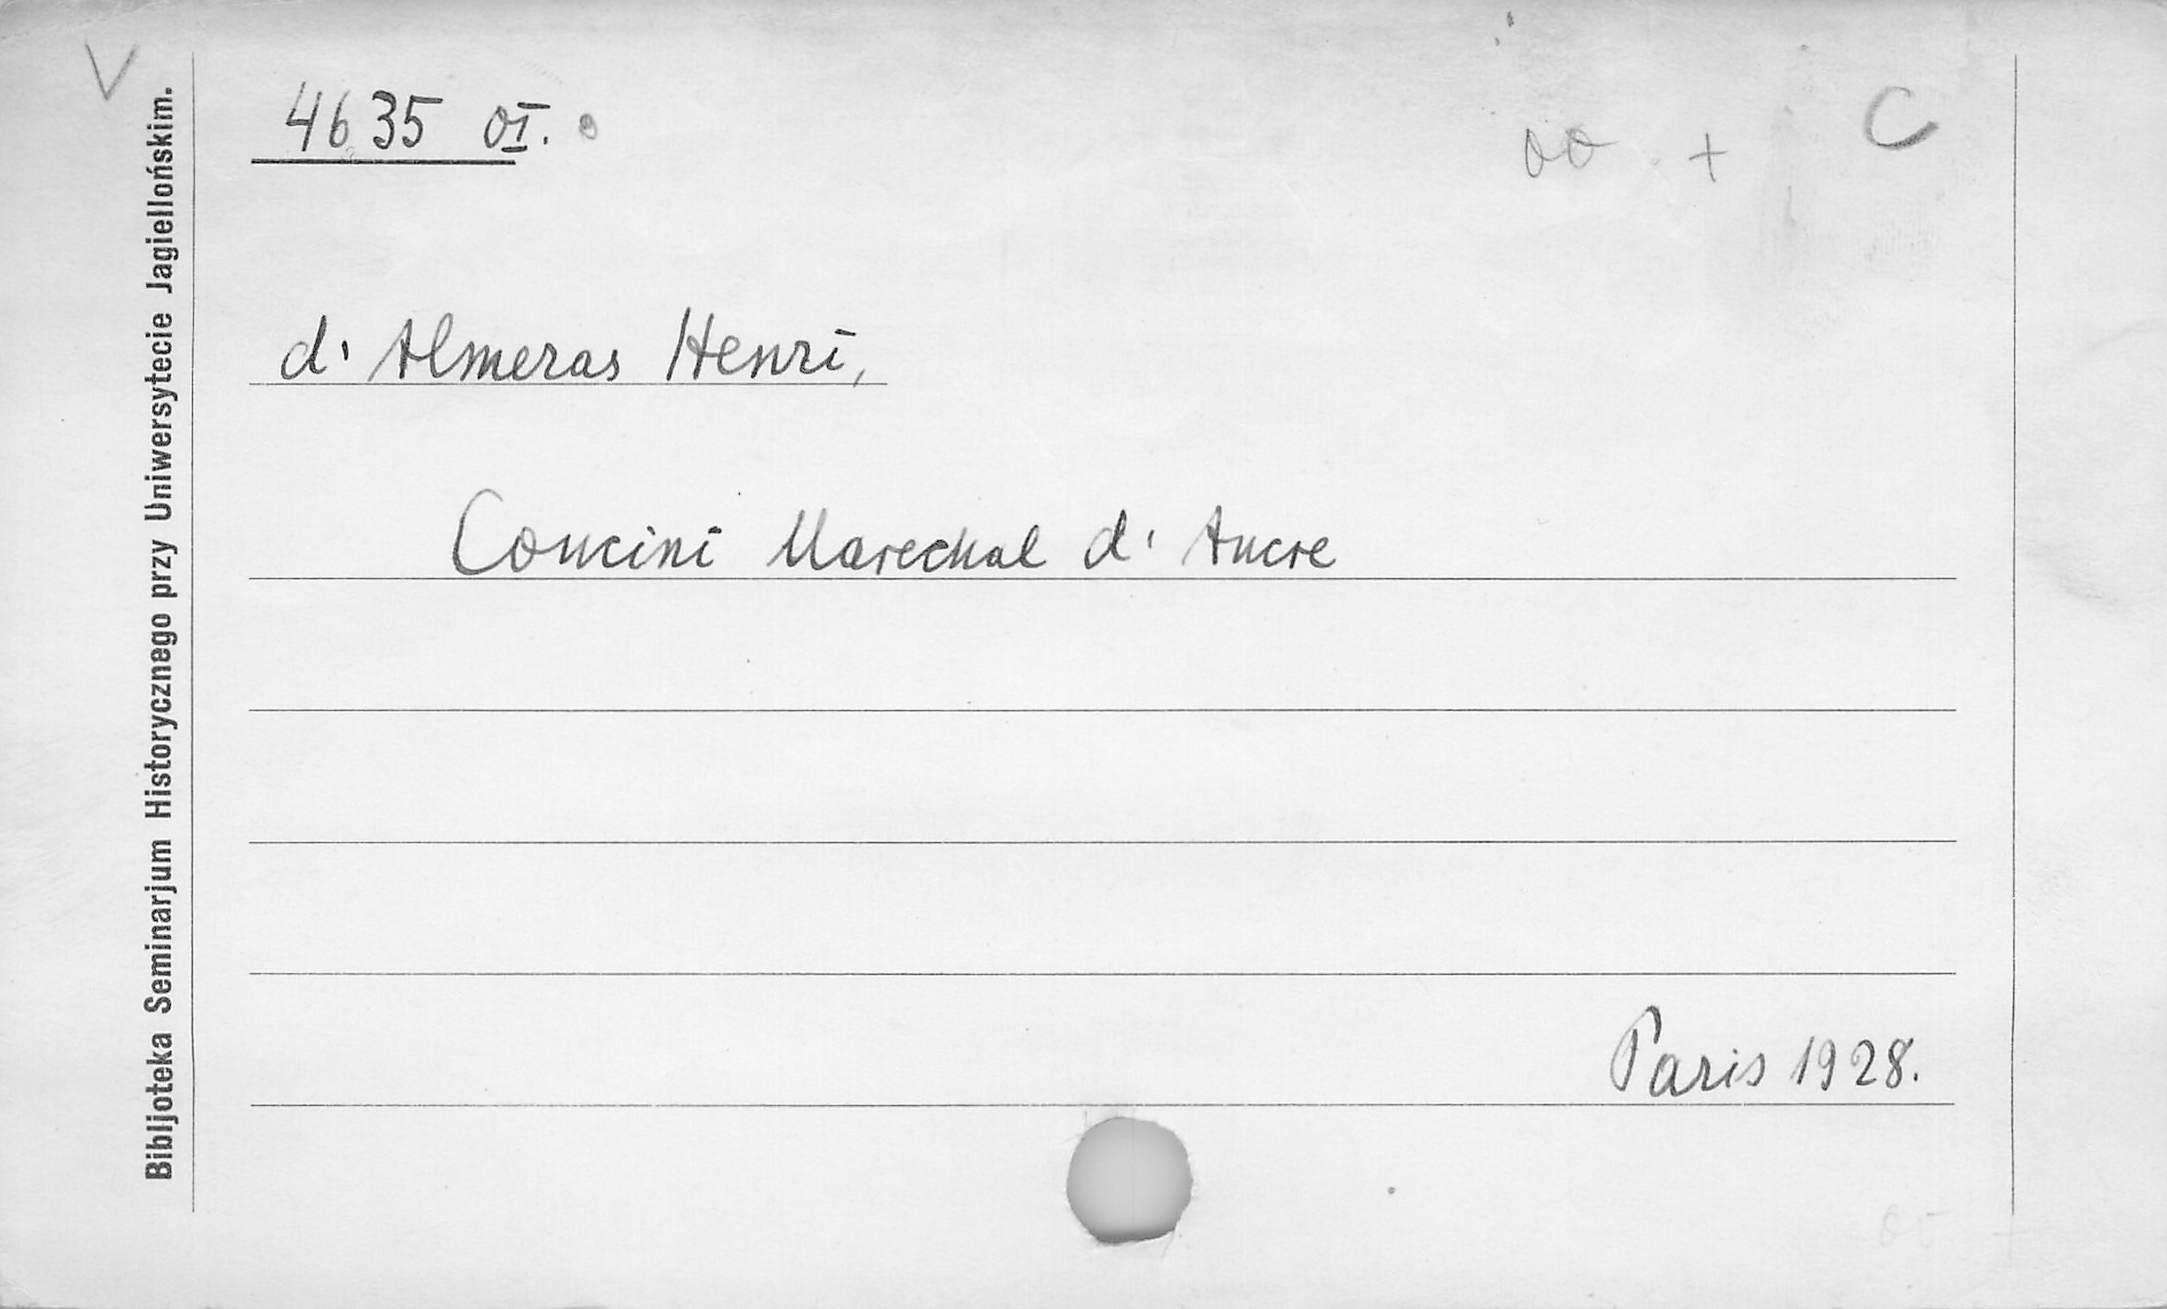 V
4635 OI.
oo + C
d'Almeras Henri,
Concini Marechal d'Ancre
Paris 1928.
Bibljoteka Seminarjum Historycznego przy Uniwersytecie Jagiellońskim.